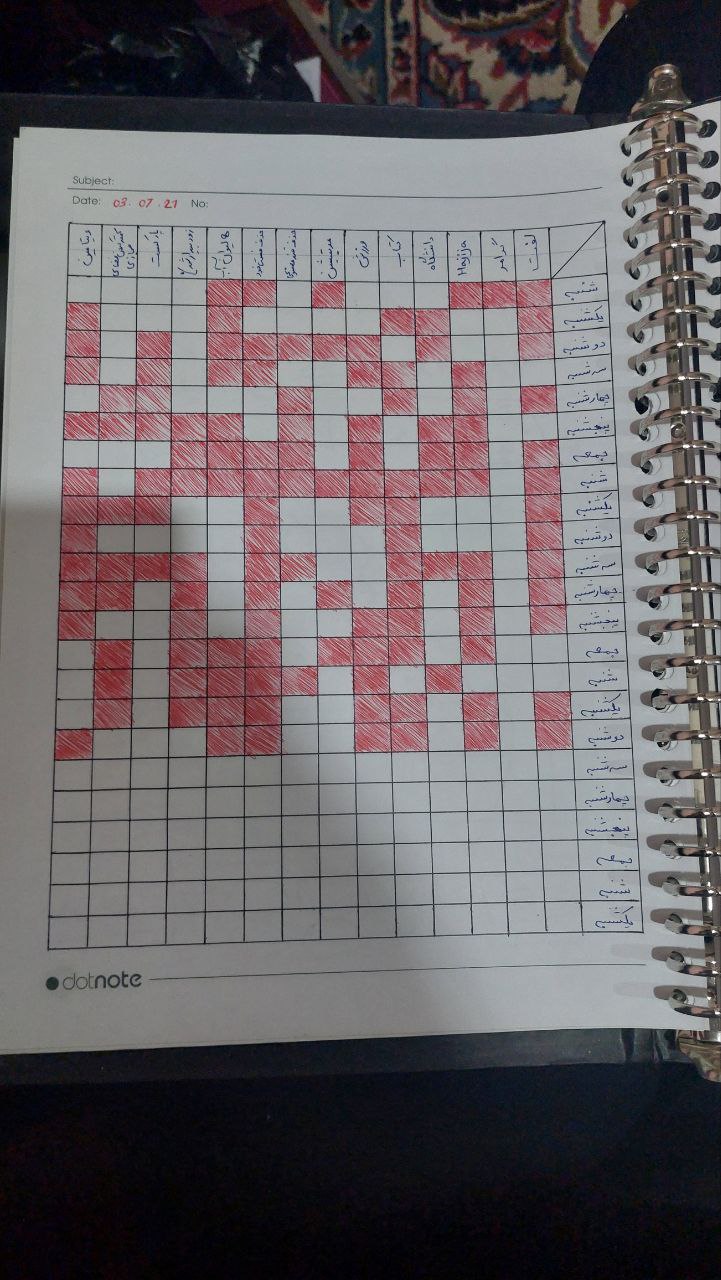 Subject:
Date: 03.07.21 No:
لغت
گرامر
Hajija
دانشگاه
کتاب
ورزش
مدیتیشن
پادکست
ویتامین
شنبه
یکشنبه
دوشنبه
سه شنبه
چهارشنبه
پنجشنبه
جمعه
شنبه
یکشنبه
دوشنبه
سه شنبه
چهارشنبه
پنجشنبه
جمعه
شنبه
یکشنبه
دوشنبه
سه شنبه
چهارشنبه
پنجشنبه
جمعه
شنبه
یکشنبه
dotnote